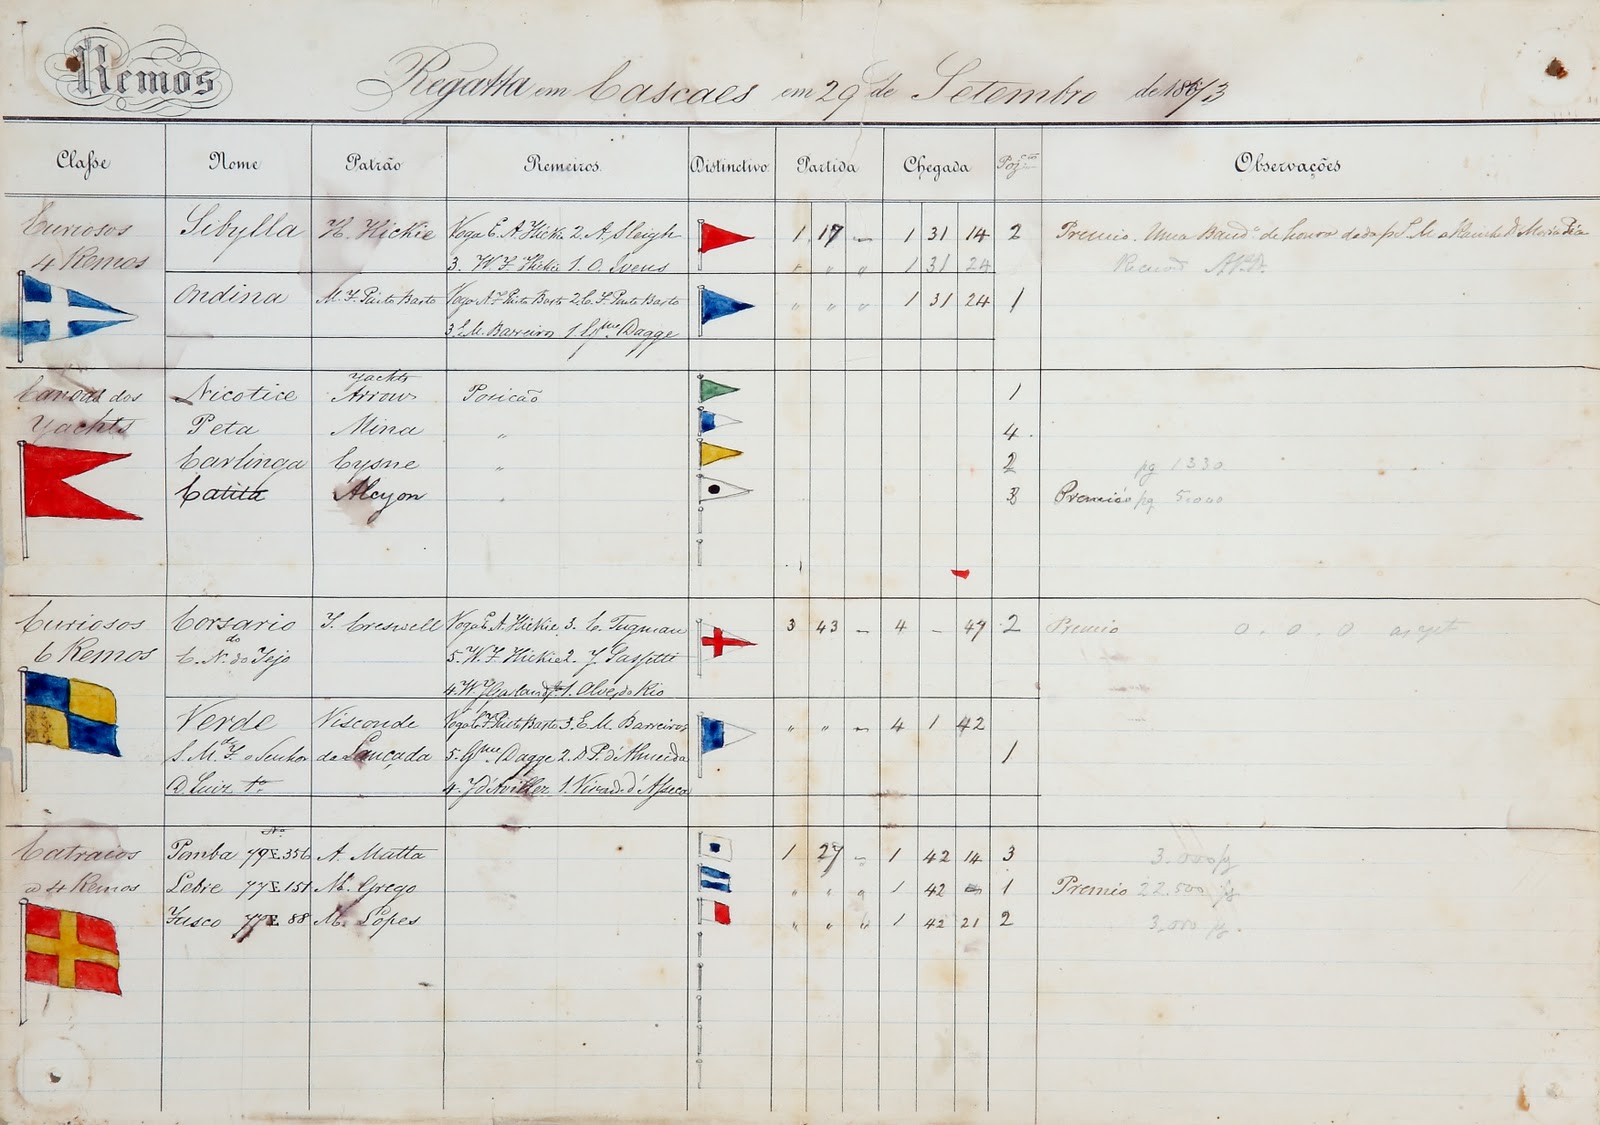 Remos
Regatta em Cascaes em 29 de Setembro de 1873
Classe Nome Patrão Remeiros. Distinctivo Partida Chegada Poz.çao Observações
Curiosos Sibylla H. Hickie Voga E. A. Hickie 2. A. Sleigh 1 17 — 1 31 14 2 Premio. Uma Band.ª de honra dada p.r S. M. a Rainha D. Maria Pia
4 Remos 3. W. F. Hickie 1. O. Ivens " " " 1 31 24
Ondina M. F. Pinto Basto Voga A. F. Pinto Basto 2. C. F. Pinto Basto " " " 1 31 24 1
3. E. M. Barreiros 1. G.me Dagge
Canoas dos Nicotice Yachts Arrow Posicão 1
Yachts Peta Mina " 4.
Carlinga Cysne " 2 pg 1330
Catita Alcyon " 3 Premios pg 5.000
Curiosos Corsario T. Creswell Voga E. A. Hickie. 3. C. Tugman 3 43 — 4 — 47 2 Premio 0. 0. 0. 0 as yet
6 Remos do C. N. do Tejo 5. W. F. Hickie 2. J.
4. W. J. Garland 1. Alves do Rio
Verde Visconde Voga C. F. Pinto Basto 3. E. M. Barreiros " " — 4 1 42
S. M. F. o Senhor da Lançada 5. G.me Dagge 2. D. P. d'Almeida 1
D. Luiz 1.º 4. J. d'Avillez 1. Visc. d'Asseca
Catraios Pomba 77 E. 356 A. Matta 1 27 — 1 42 14 3 3.000 pg
a 4 Remos Lebre 77 E. 151 M. Grego " " " 1 42 1 Premio 22.500 pg
Fusco 77 E. 88 M. Lopes " " " 1 42 21 2 3,000 pg.